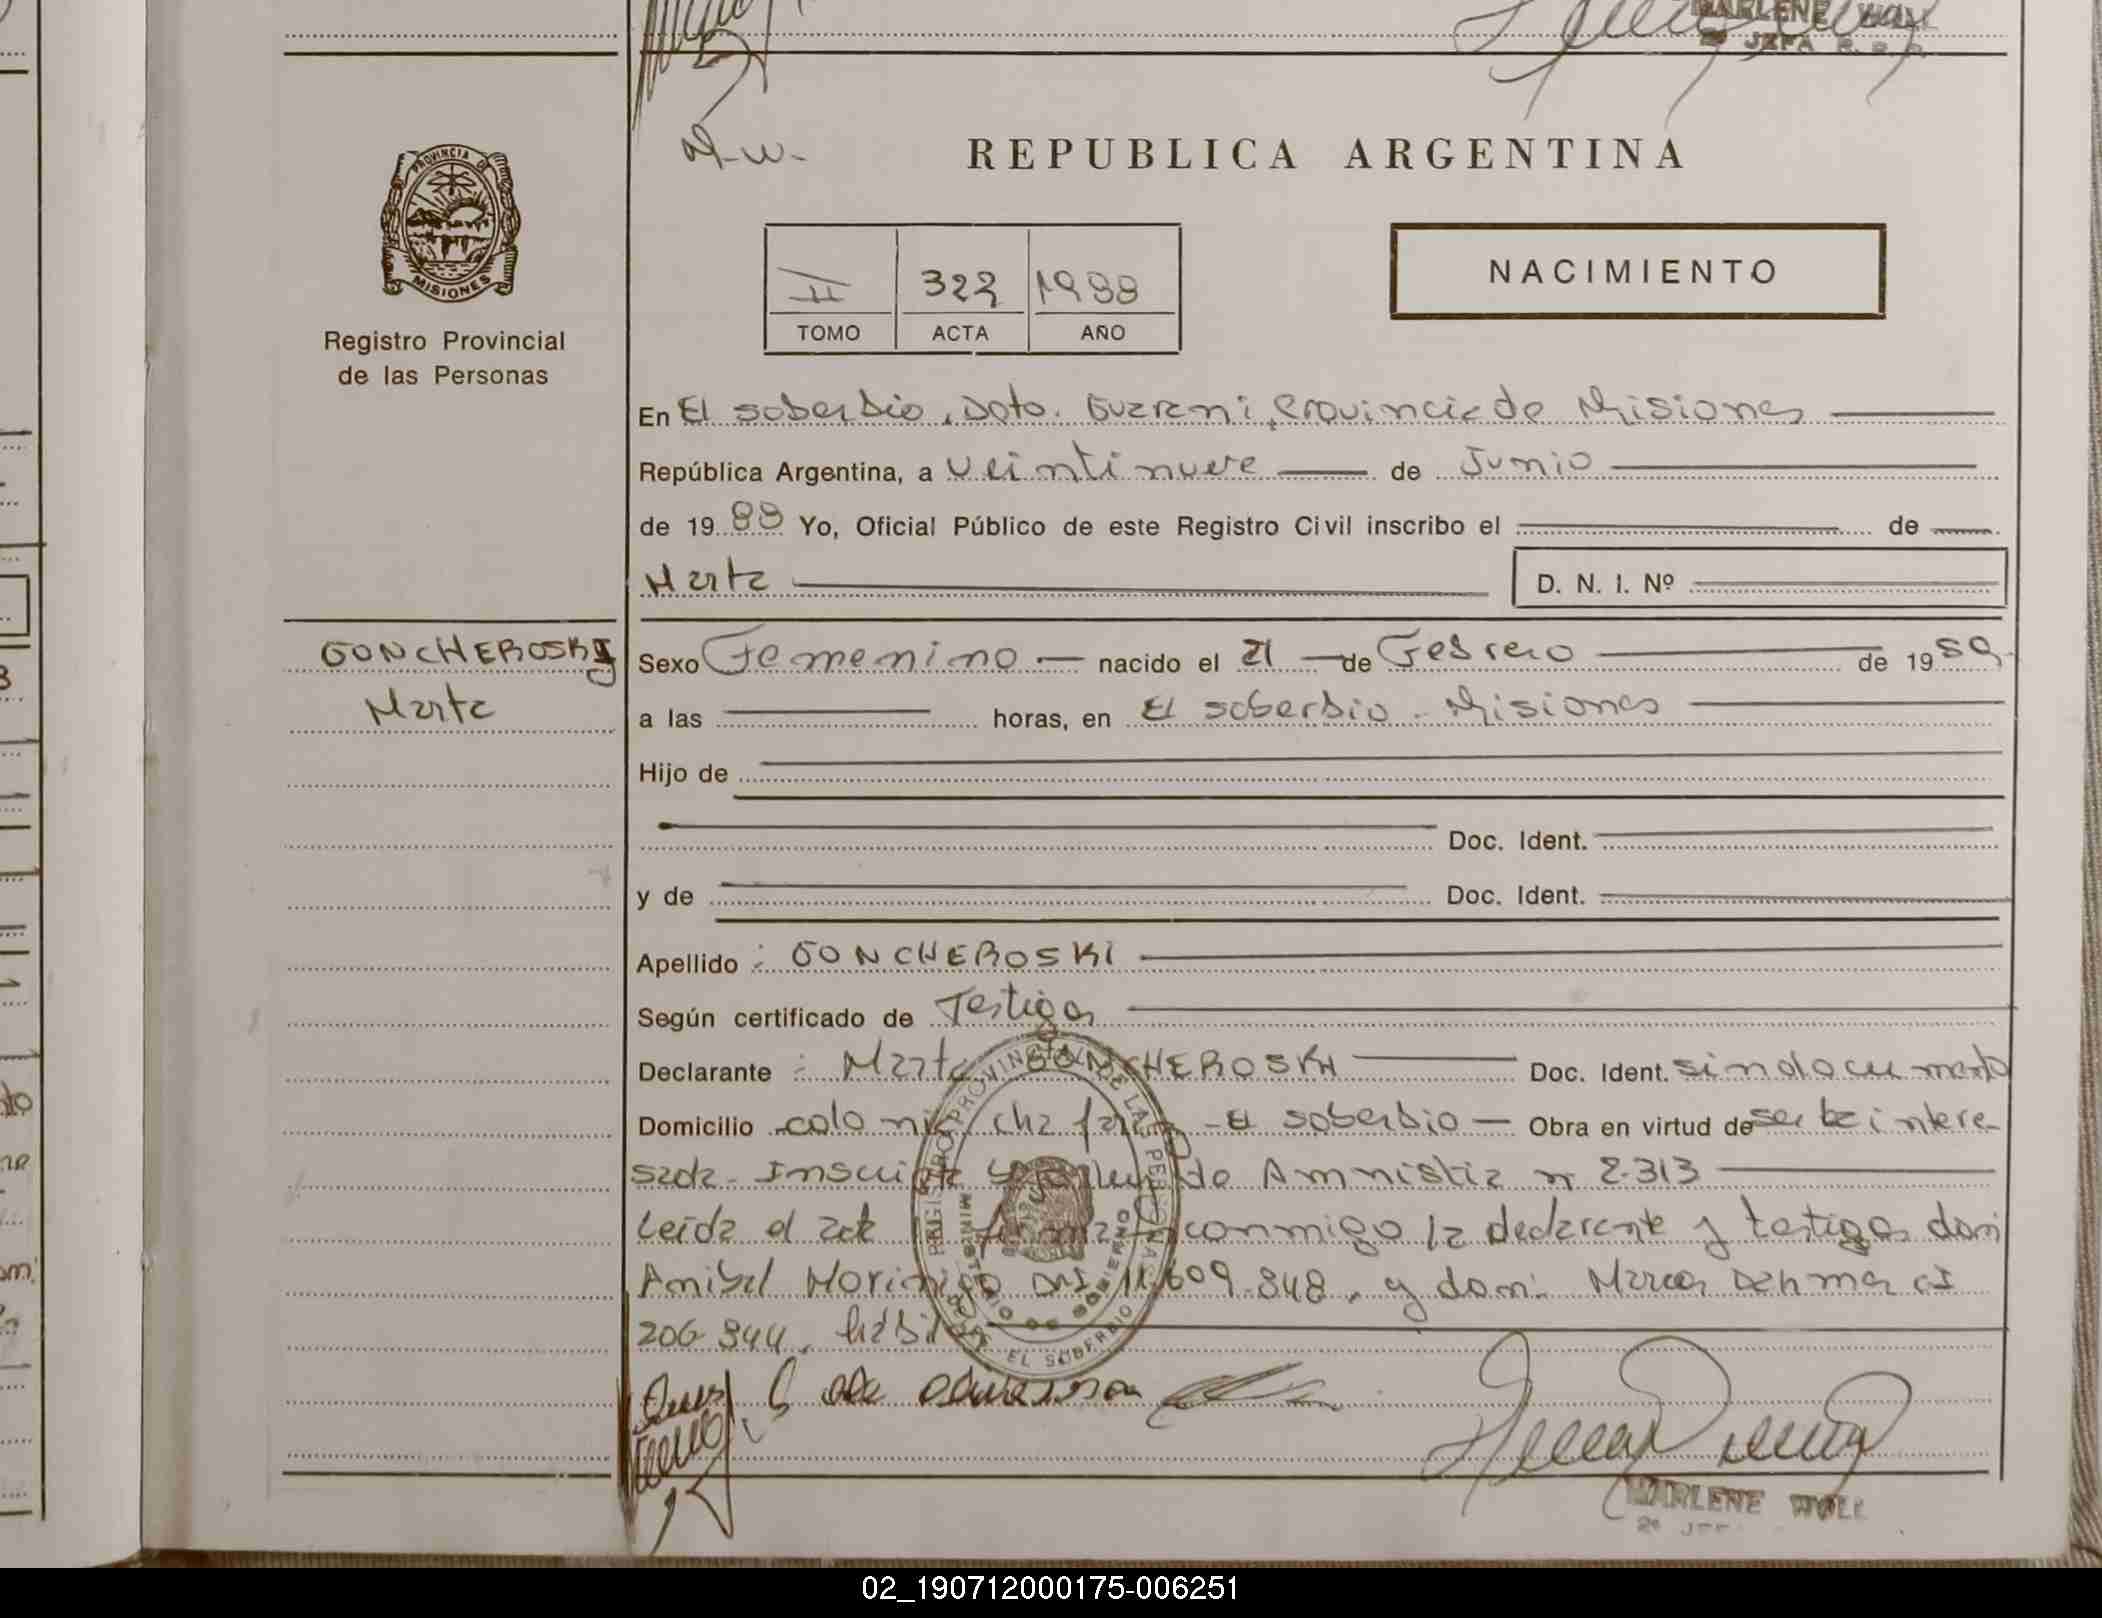 MARLENE WOLL
JEFA R. P. P.
M.W.
REPUBLICA ARGENTINA
PROVINCIA DE MISIONES
Registro Provincial
de las Personas
II 322 1988
TOMO ACTA AÑO
NACIMIENTO
En El soberbio, Dpto. Guarani, Provincia de Misiones
República Argentina, a veintinueve de Junio
de 1988 Yo, Oficial Público de este Registro Civil inscribo el de
Marta D. N. I. Nº
GONCHEROSKI
Marta
Sexo Femenino nacido el 21 de Febrero de 1959
a las horas, en El soberbio - Misiones
Hijo de
Doc. Ident.
y de Doc. Ident.
Apellido : GONCHEROSKI
Según certificado de Testigos
Declarante : Marta GONCHEROSKI Doc. Ident. sin documento
Domicilio colonia chafariz - El soberbio Obra en virtud de ser la intere-
sada. Inscripta s/ ley de Amnistia nº 2.313
Leída el acta la firman conmigo la declarante y testigos don:
Anibal Morinigo DNI 11.609.848, y don: Marcos CI
206.944, hábiles
REGISTRO PROVINCIAL DE LAS PERSONAS
MINISTERIO DE GOBIERNO
EL SOBERBIO
MARLENE WOLL
02_190712000175-006251